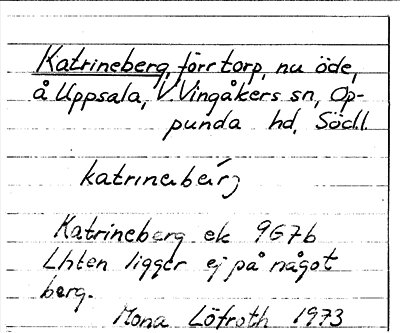 Katrineberg, förr torp, nu öde,
å Uppsala, V. Vingåkers sn, Op-
punda hd, Södl.
katrinabärj
Katrineberg ek 967b
Lhten ligger ej på något
berg.
Mona Löfroth 1973